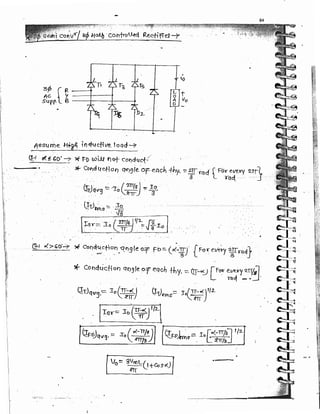 Semi conv / 3ϕ Half Controlled Rectifier →
3ϕ R
AC Y
Supp. B
T1 T2 T3
i0
L
O
A
D
V0
D2
Assume High inductive load →
α ≤ 60° → * FD will not conduct
* Conduction angle of each thy. = 2π/3 rad { For every 2π rad }
(IT)avg = I0 (2π/3 / 2π) = I0/3
(IT)rms = I0/√3
Isr = I0 (2π/3 / π)^1/2 = √(2/3) I0
α > 60° → * Conduction angle of FD = (α - π/3) { For every 2π/3 rad }
* Conduction angle of each thy. = (π - α) [ For every 2π rad ]
(IT)avg = I0 (π-α / 2π) (IT)rms = I0 (π-α / 2π)^1/2
Isr = I0 (π-α / π)^1/2
(IFD)avg. = I0 (α-π/3 / 2π/3) (IFD)rms = I0 (α-π/3 / 2π/3)^1/2
V0 = 3Vml / 2π (1+cos α)